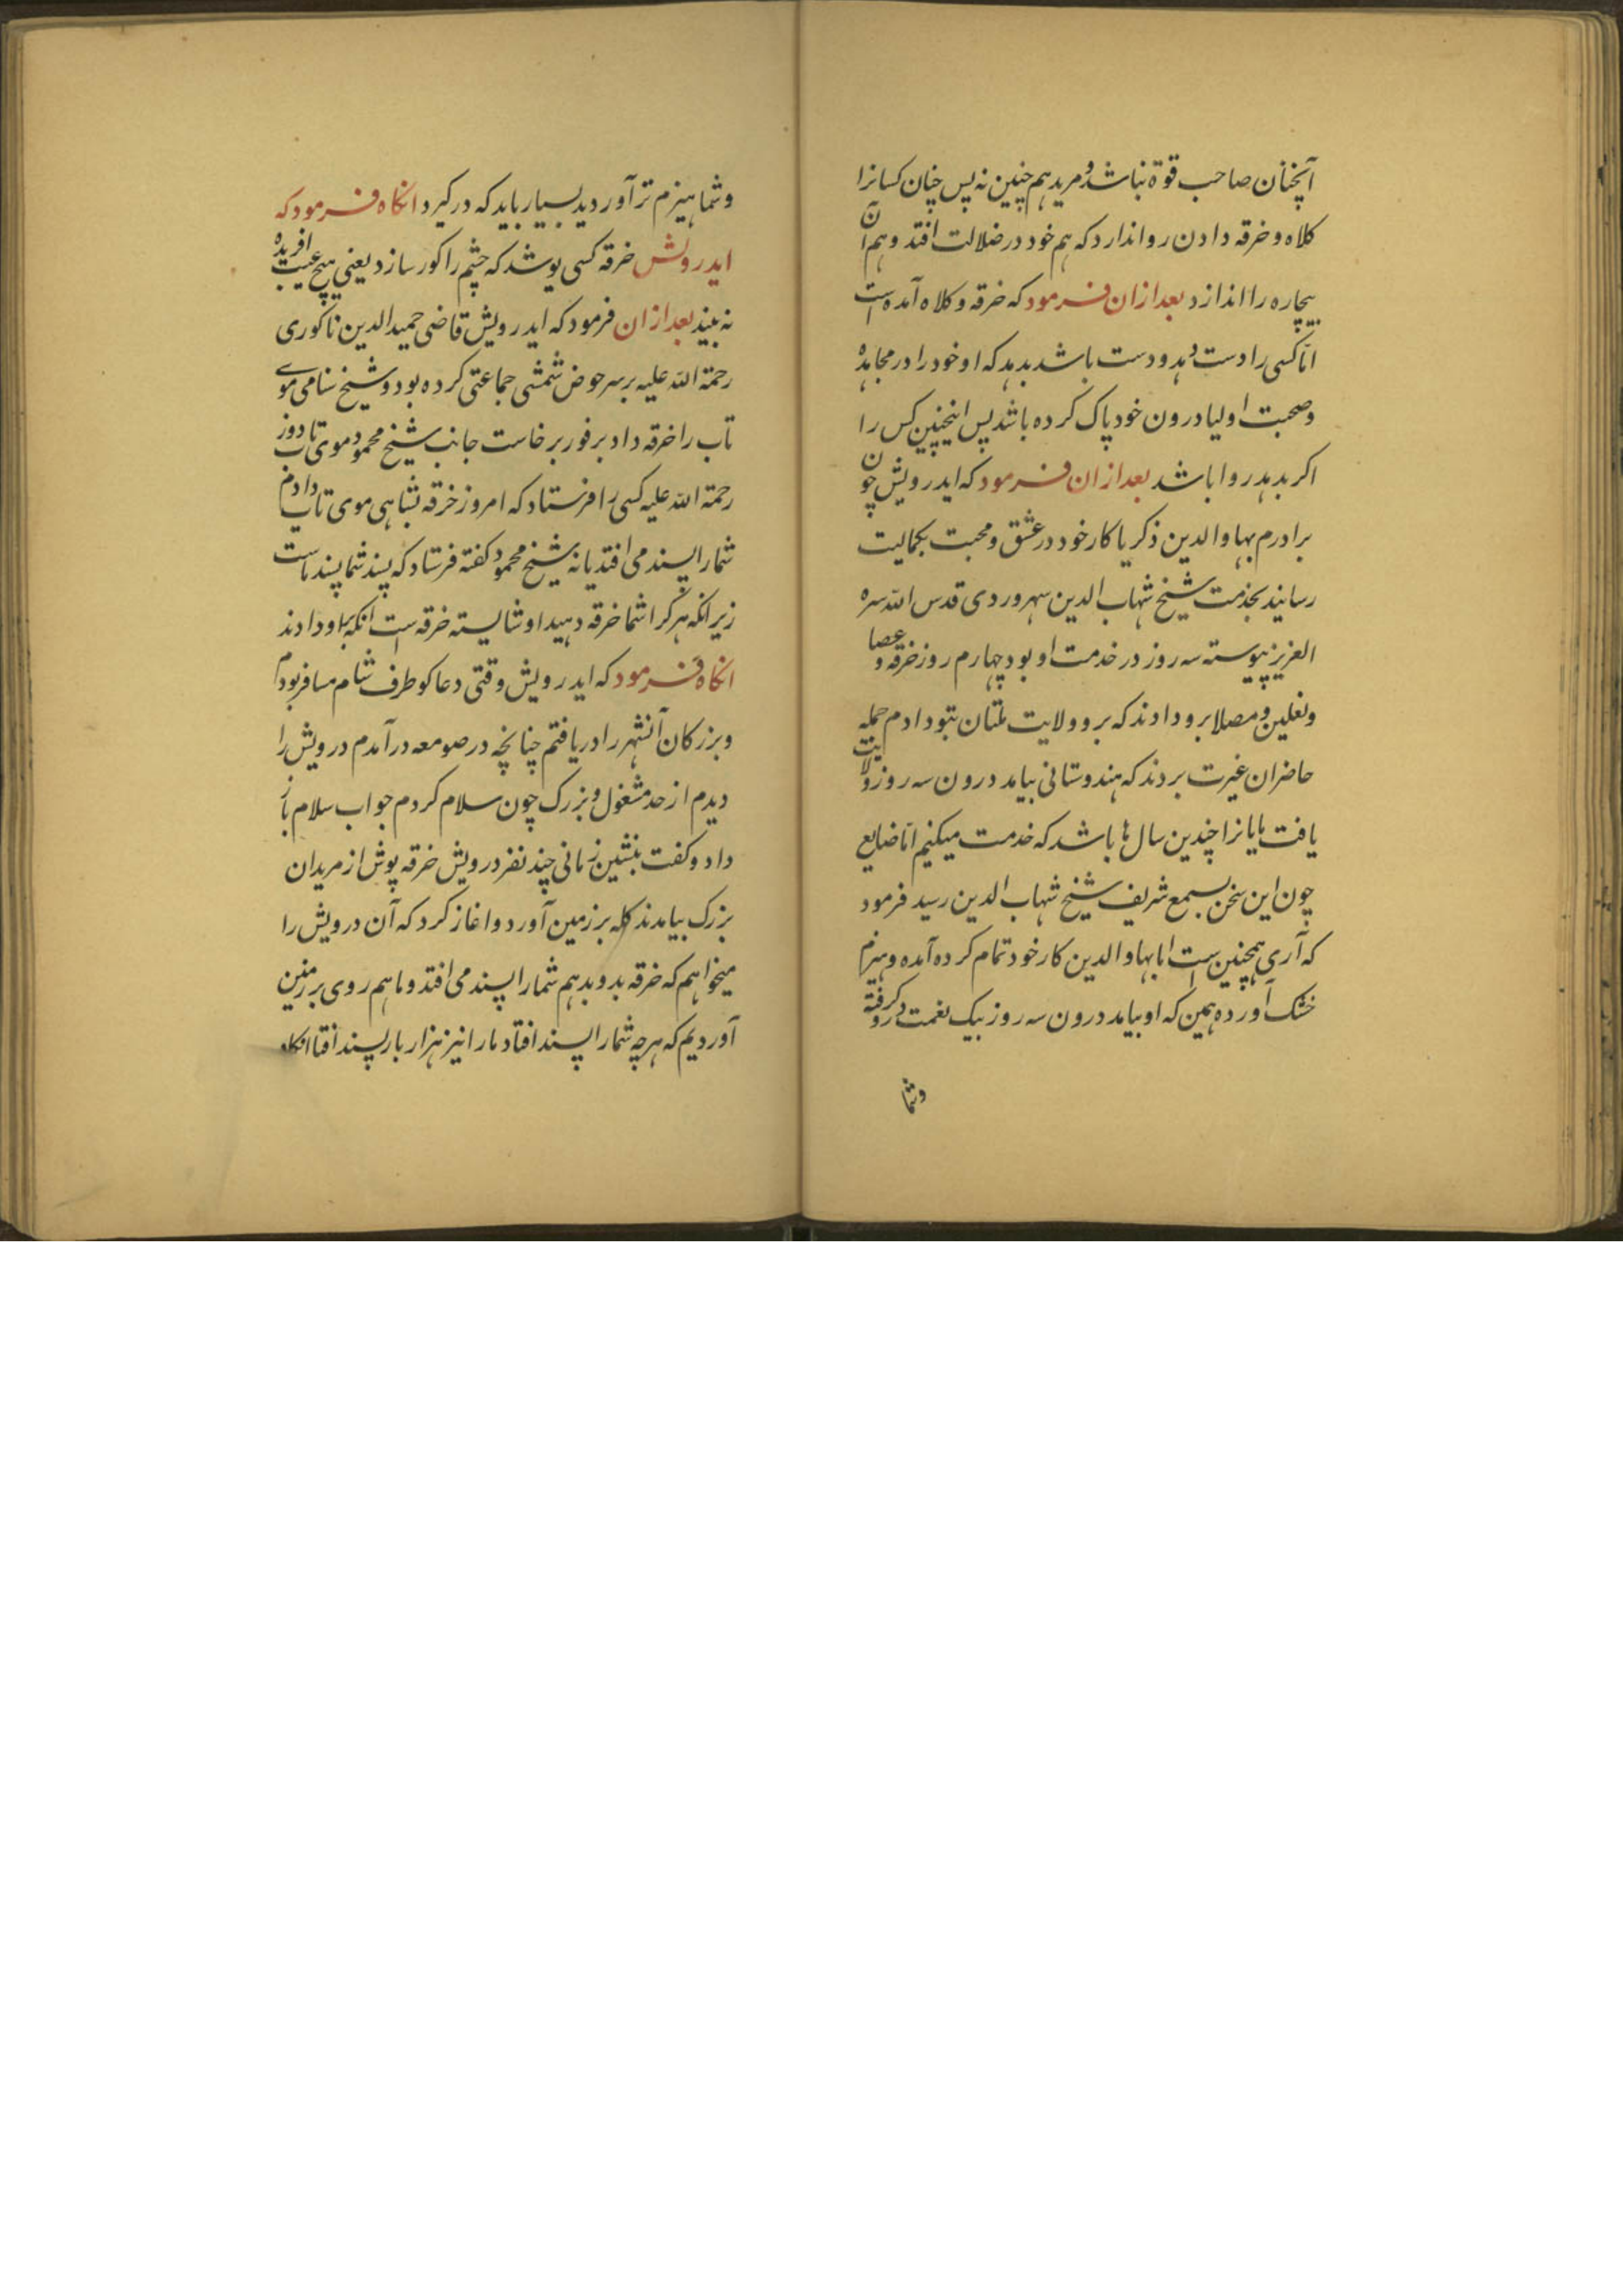 آنچنان صاحب قوة نباشد و مرید هم چنین نه پس چنان کسانرا
کلاه و خرقه دادن روا ندارد که هم خود در ضلالت افتد و هم آن
بیچاره را اندازد بعد ازان فرمود که خرقه و کلاه آمده است
امّا کسی را دست دهد و دست باشد بدهد که او خود را در مجاهده
و صحبت اولیا درون خود پاک کرده باشد پس اینچنین کس را
اکر بدهد روا باشد بعد ازان فرمود که ایدرویش چون
برادرم بهاوالدین ذکریا کار خود در عشق و محبت بکمالیت
رسانید بخدمت شیخ شهاب الدین سهروردی قدس الله سره
العزیز پیوسته سه روز در خدمت او بود چهارم روز خرقه و عصا
و نعلین و مصلا برو دادند که برو ولایت ملتان بتو دادم جمله
حاضران غیرت بردند که هندوستانی بیامد درون سه روز ولایت
یافت یایانرا چندین سال ها باشد که خدمت میکنیم امّا ضایع
چون این سخن بسمع شریف شیخ شهاب الدین رسید فرمود
که آری همچنین است اما بهاوالدین کار خود تمام کرده آمده و هیزم
خشک آورده همین که او بیامد درون سه روز بیک نعمت درو کرفته
وشما
وشما هیزم تر آوردید بسیار باید که در کیرد انکاه فرمود که
ایدرویش خرقه کسی پوشد که چشم را کور سازد یعنی هیچ عیب افریده
نه بیند بعد ازان فرمود که ایدرویش قاضی حمیدالدین ناکوری
رحمة الله علیه بر سر حوض شمشی جماعتی کرده بود و شیخ شاهی موی
تاب را خرقه داد بر فور برخاست جانب شیخ محمود موی تاب دوز
رحمة الله علیه کسی را فرستاد که امروز خرقه بشاهی موی تاب دادم
شمارا پسند می افتد یا نه شیخ محمود کفته فرستاد که پسند شما پسند ماست
زیرانکه هر کرا شما خرقه دهید او شایسته خرقه است انکه باو دادند
انکاه فرمود که ایدرویش وقتی دعا کو طرف شام مسافر بودم
و بزرکان آنشهر را دریافتم چنانچه در صومعه درآمدم درویش را
دیدم از حد مشغول و بزرک چون سلام کردم جواب سلام باز
داد و کفت بنشین زمانی چند نفر درویش خرقه پوش از مریدان
بزرک بیامدند کله بر زمین آورد و اغاز کرد که آن درویش را
میخواهم که خرقه بدو بدهم شمارا پسند می افتد و ما هم روی بر زمین
آوردیم که هر چه شمارا پسند افتاد مارا نیز هزار بار پسند افتا انکاه